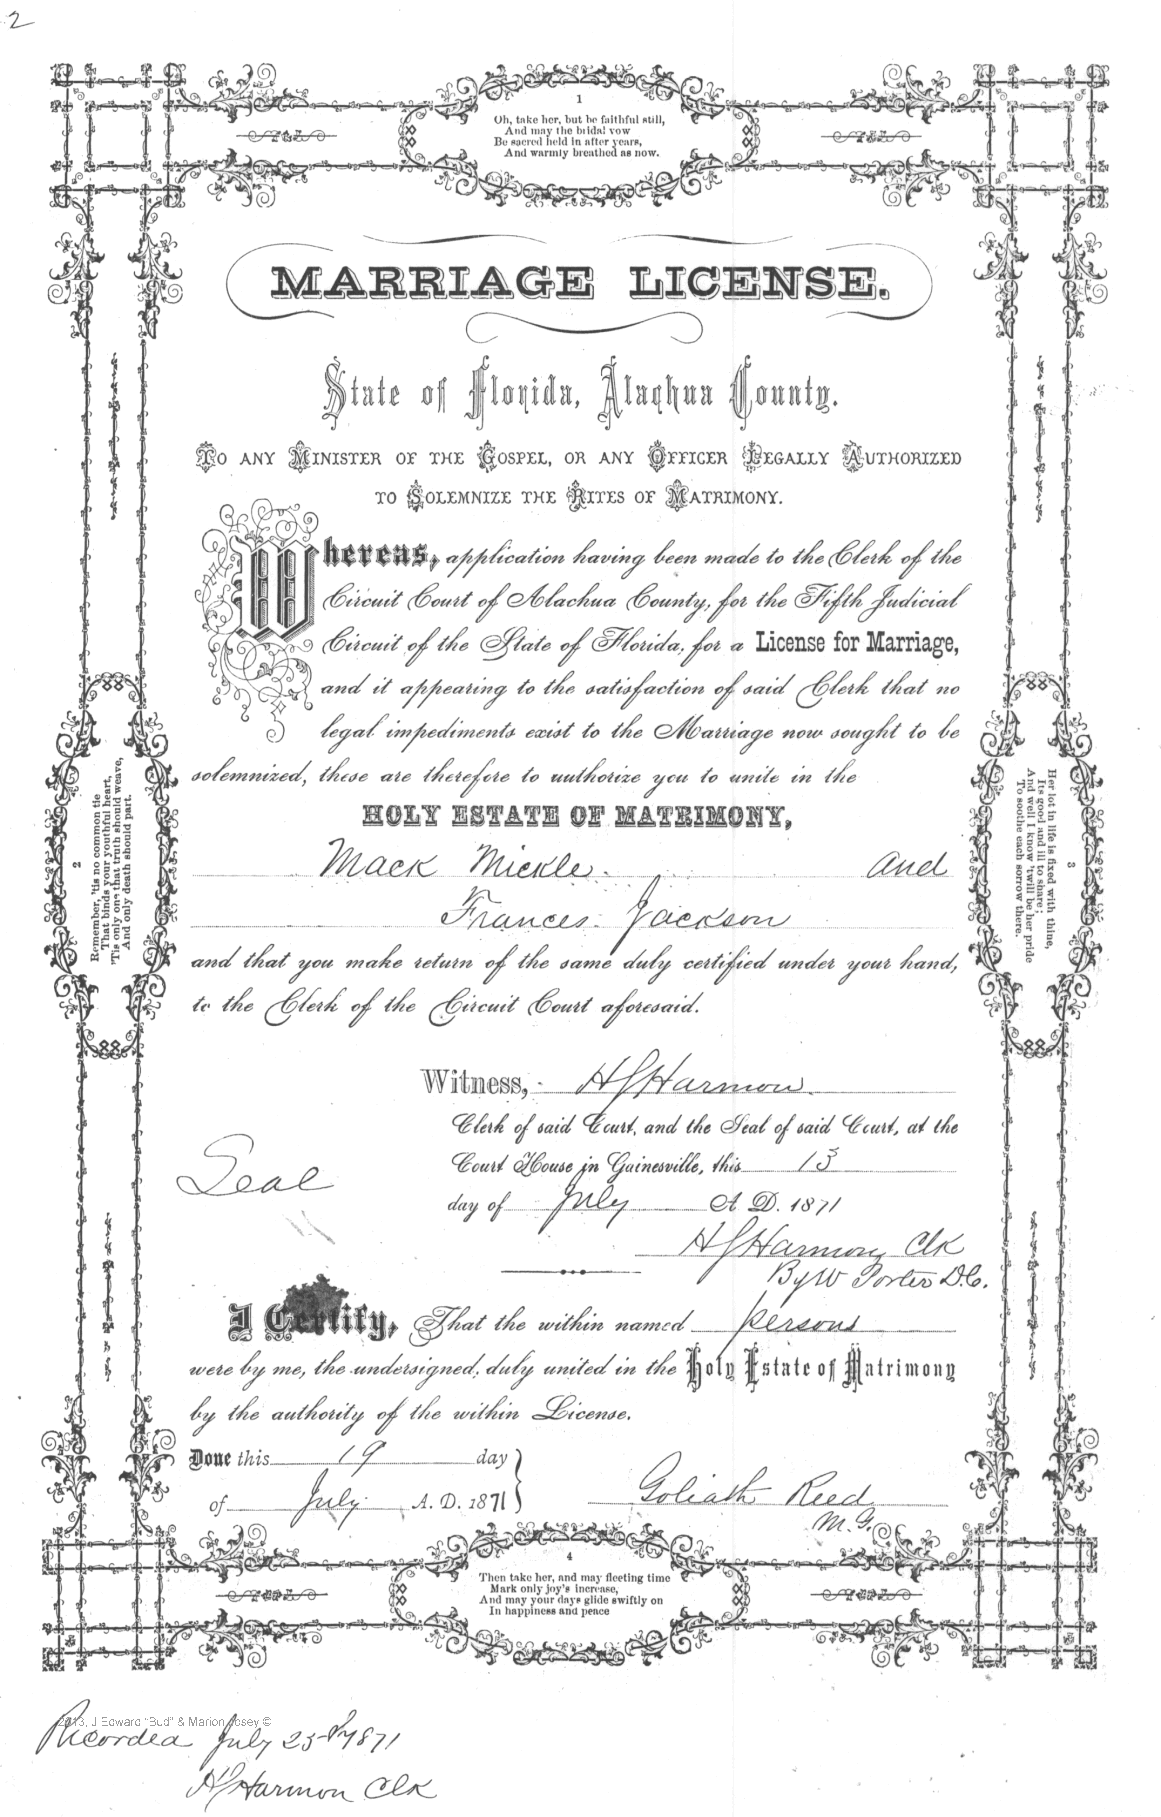 2
1
Oh, take her, but be faithful still,
And may the bridal vow
Be sacred held in after years,
And warmly breathed as now.
MARRIAGE LICENSE.
State of Florida, Alachua County.
To any Minister of the Gospel, or any Officer Legally Authorized
to Solemnize the Rites of Matrimony.
Whereas, application having been made to the Clerk of the
Circuit Court of Alachua County, for the Fifth Judicial
Circuit of the State of Florida, for a License for Marriage,
and it appearing to the satisfaction of said Clerk that no
legal impediments exist to the Marriage now sought to be
solemnized, these are therefore to authorize you to unite in the
HOLY ESTATE OF MATRIMONY,
Mack Mickle. and
Frances Jackson
and that you make return of the same duly certified under your hand,
to the Clerk of the Circuit Court aforesaid.
2
Remember, 'tis no common tie
That binds your youthful heart,
'Tis only one that truth should weave,
And only death should part.
3
Her lot in life is fixed with thine,
Its good and ill to share;
And well I know 'twill be her pride
To soothe each sorrow there.
Witness, H S Harmon
Clerk of said Court, and the Seal of said Court, at the
Court House in Gainesville, this 13
Seal
day of July A. D. 1871
H S Harmon Clk
By W Porter D.C.
I Certify, That the within named persons
were by me, the undersigned, duly united in the Holy Estate of Matrimony
by the authority of the within License.
Done this 19 day
of July A. D. 1871
Goliath Reed
M. G.
4
Then take her, and may fleeting time
Mark only joy's increase,
And may your days glide swiftly on
In happiness and peace
2013, J Edward "Bud" & Marion Josey ©
Recorded July 25th 1871
H S Harmon Clk